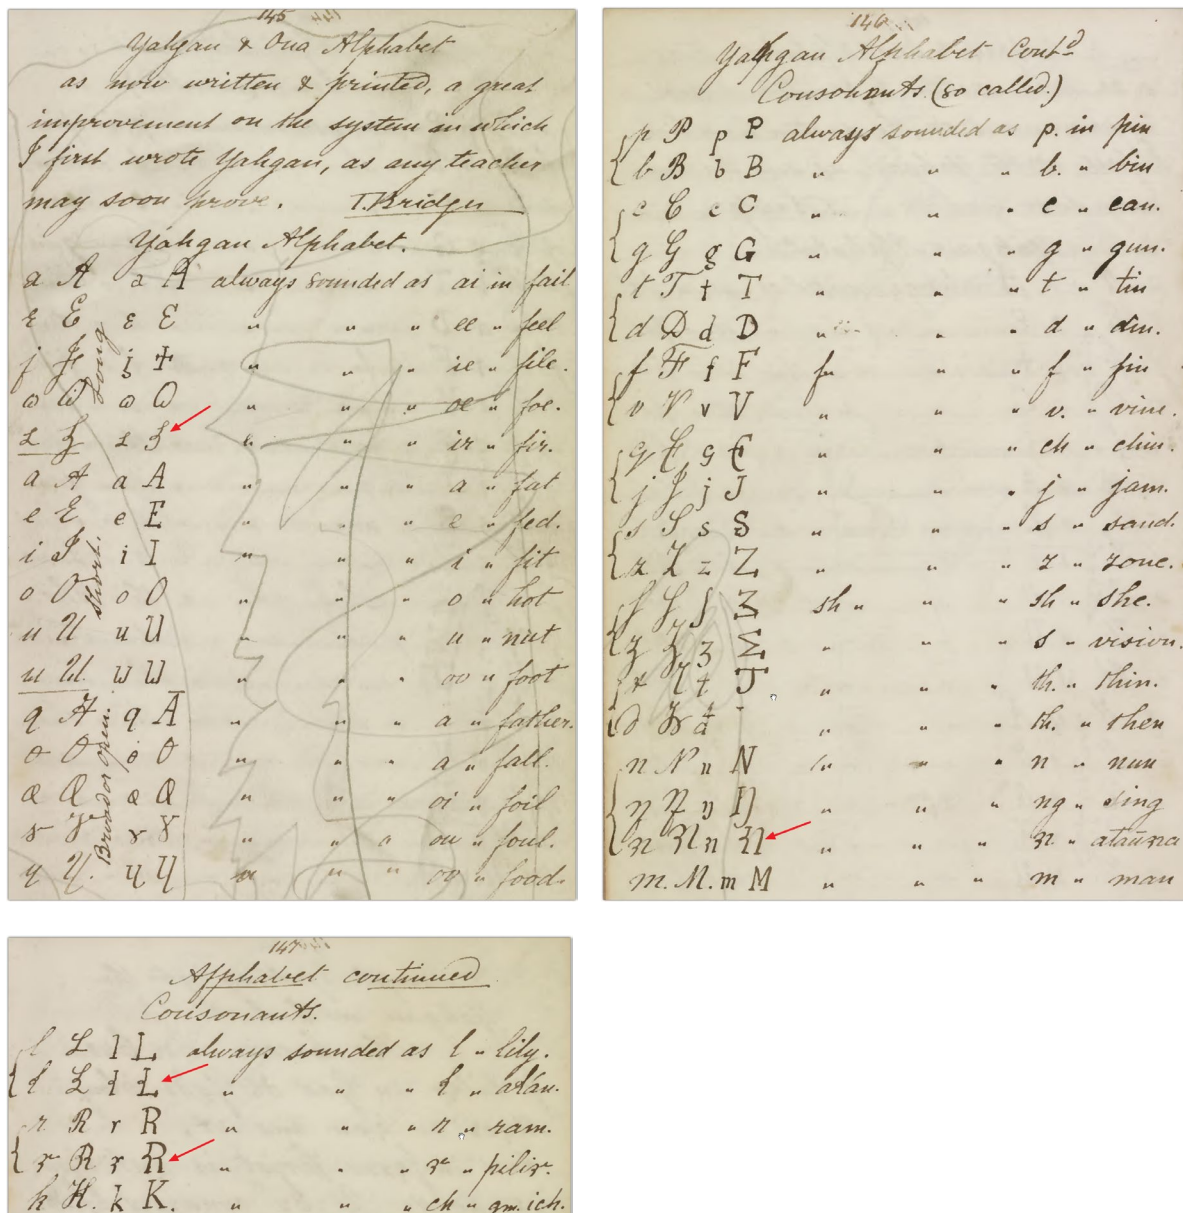 145
Yahgan & Ona Alphabet
as now written & printed, a great
improvement on the system in which
I first wrote Yahgan, as any teacher
may soon prove. T. Bridges
Yahgan Alphabet.
a A a A always sounded as ai in fail
ɛ Ɛ ɛ Ɛ " " " ee " feel
" " " ie " file.
" " " oe " foe.
" " " ir " fir.
a A a A " " " a " fat
e E e E " " " e " fed.
i I i I " " " i " fit
o O o O " " " o " hot
u U u U " " " u " nut
ɯ Ɯ ɯ Ɯ " " " oo " foot
" " " a " father.
" " " a " fall.
œ Œ œ Œ " " " oi " foil
" " " ou " foul.
" " " oo " food.
Long
Short.
Broad or open.
146
Yahgan Alphabet Contd
Consonants. (so called.)
p P p P always sounded as p. in pin
b B b B " " " b. " bin
c C c C " " " c " can.
g G g G " " " g " gun.
t T t T " " " t " tin
d D d D " " " d " din.
f F f F " " " f " fin
v V v V " " " v. " vine.
" " " ch " chin.
j J j J " " " j " jam.
s S s S " " " s " sand.
z Z z Z " " " z " zone.
sh " " " sh " she.
" " " s " vision.
" " " th. " thin.
" " " th. " then
n N n N " " " n " nun
ŋ Ŋ ŋ Ŋ " " " ng " sing
" " "
m. M. m M " " " m " man
147
Alphabet continued
Consonants.
l L l L always sounded as l " lily.
" " "
r R r R " " " r " ram.
" " "
k K. k K. " " " ch " gm. ich.